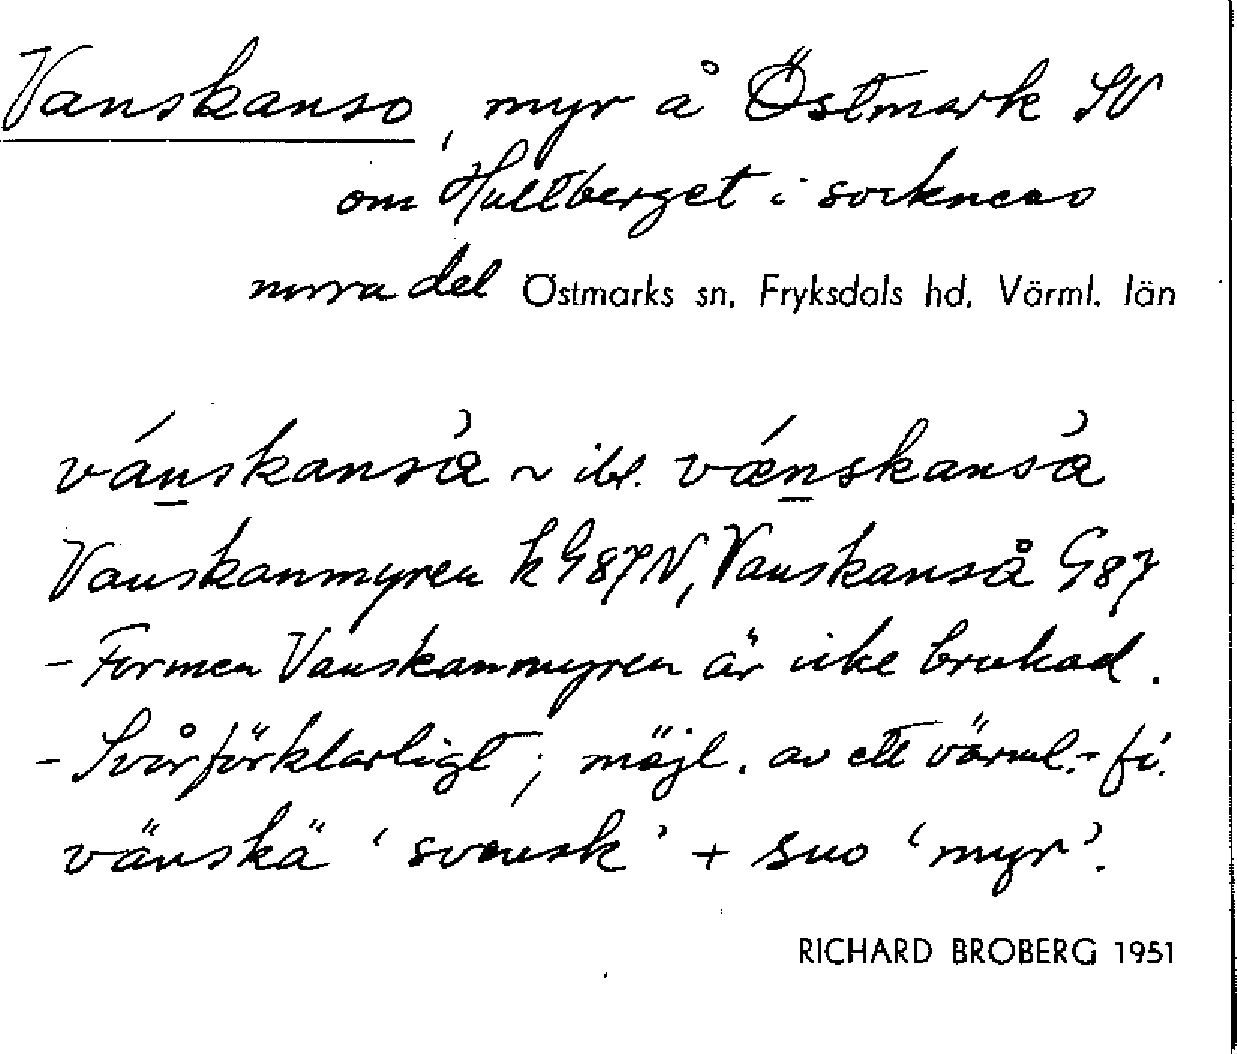 Vanskanso, myr å Östmark SV
om Hultberget i socknens
norra del Östmarks sn. Fryksdals hd. Värml. län
vánskanså ~ ibl. vǽnskanså
Vanskanmyren k G87N, Vanskanså G87
- Formen Vanskanmyren är icke brukad.
- Svårförklarligt; möjl. av ett värml.-fi.
vänskä ‘svensk’ + suo ‘myr’.
RICHARD BROBERG 1951